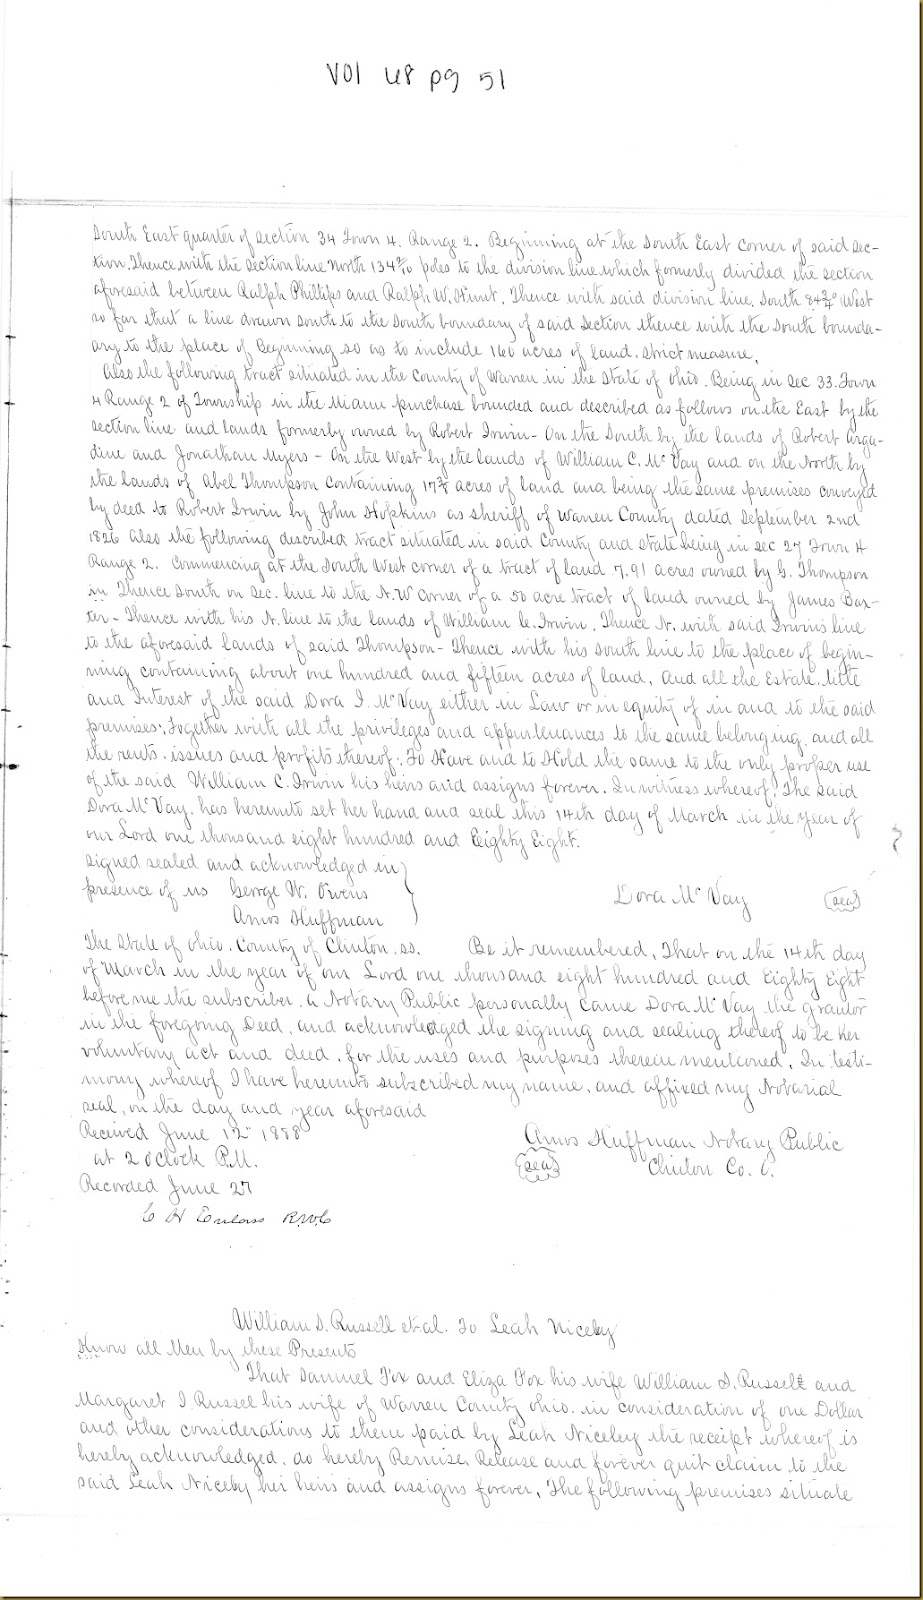 Vol 48 pg 51
South East quarter of section 34 Town 4. Range 2. Beginning at the South East corner of said sec-
tion. Thence with the section line North 134 poles to the division line which formerly divided the section
aforesaid between Ralph Phillips and Ralph W. Hunt. Thence with said division line, South 84¾° West
so far that a line drawn south to the South boundary of said Section thence with the South bounda-
ary to the place of Beginning so as to include 160 acres of land. strict measure.
Also the following tract situated in the County of Warren in the State of Ohio. Being in Sec 33. Town
4 Range 2 of Township in the Miami purchase bounded and described as follows on the East by the
section line and lands formerly owned by Robert Irwin - On the South by the lands of Robert
and Jonathan Myers - On the West by the lands of William C. McVay and on the North by
the lands of Abel Thompson containing acres of land and being the same premises conveyed
by deed to Robert Irwin by John Hopkins as sheriff of Warren County dated September 2nd
1826 Also the following described tract situated in said County and state being in Sec 27 Town 4
Range 2. Commencing at the South West corner of a tract of land 7.91 acres owned by G. Thompson
in Thence South on Sec. line to the N.W corner of a 50 acre tract of land owned by James Bax-
ter - Thence with his N. line to the lands of William C. Irwin. Thence N. with said Irwin's line
to the aforesaid lands of said Thompson - Thence with his south line to the place of begin-
ning containing about one hundred and fifteen acres of land, and all the Estate. title
and Interest of the said Dora I. McVay either in Law or in equity of in and to the said
premises; Together with all the privileges and appurtenances to the same belonging. and all
the rents. issues and profits thereof; To Have and to Hold the same to the only proper use
of the said William C. Irwin his heirs and assigns forever. In witness whereof, The said
Dora McVay. has hereunto set her hand and seal this 14th day of March in the year of
our Lord one thousand eight hundred and Eighty Eight.
Signed sealed and acknowledged in
presence of us George W. Owens Dora McVay seal
Amos Huffman
The State of Ohio. County of Clinton. ss. Be it remembered, That on the 14th day
of March in the year of our Lord one thousand eight hundred and Eighty Eight
before me the subscriber. a Notary Public personally came Dora McVay the grantor
in the foregoing Deed, and acknowledged the signing and sealing thereof to be her
voluntary act and deed, for the uses and purposes therein mentioned. In testi-
mony whereof I have hereunto subscribed my name, and affixed my Notarial
seal, on the day and year aforesaid
Received June 12" 1888 Amos Huffman Notary Public
at 2 O'Clock P.M. seal Clinton Co. O.
Recorded June 27
C H R.W.C
William S. Russell et al. To Leah Niceley
Know all Men by these Presents
That Samuel Fox and Eliza Fox his wife William S. Russell and
Margaret I. Russel his wife of Warren County Ohio. in consideration of one Dollar
and other considerations to them paid by Leah Niceley the receipt whereof is
hereby acknowledged. do hereby Remise, Release and forever quit claim to the
said Leah Niceley her heirs and assigns forever, The following premises situate